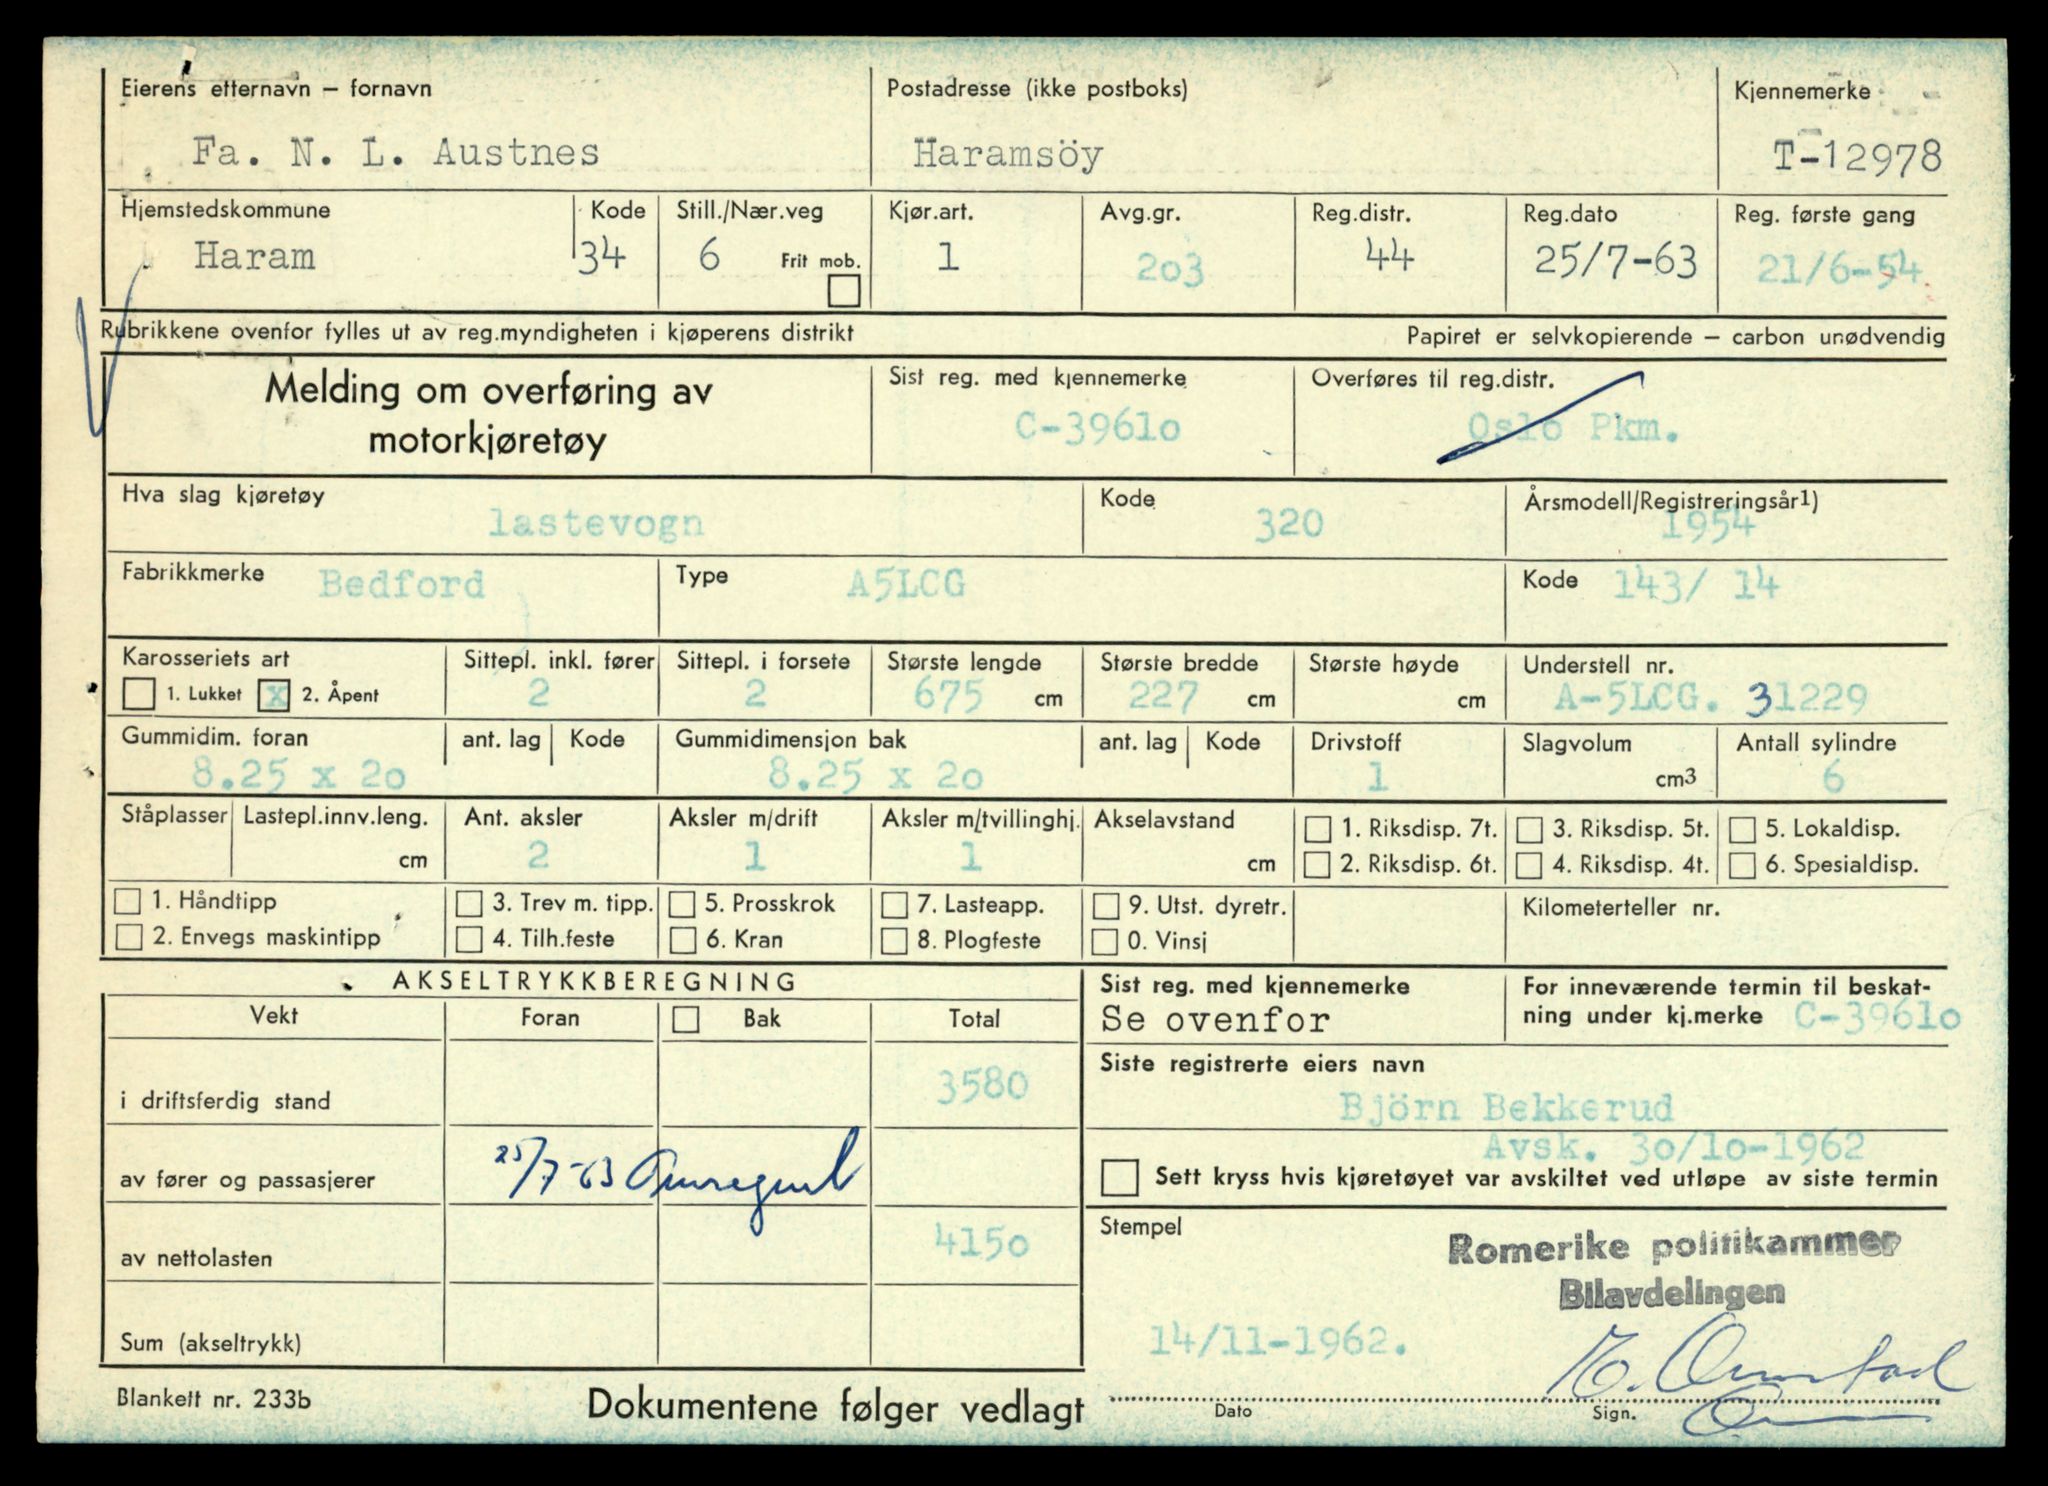 Eierens etternavn – fornavn Postadresse (ikke postboks) Kjennemerke
Fa. N. L. Austnes Haramsöy T-12978
Hjemstedskommune Kode Still./Nær.veg Kjør.art. Avg.gr. Reg.distr. Reg.dato Reg. første gang
Haram 34 6 Frit mob. 1 203 44 25/7-63 21/6-54
Rubrikkene ovenfor fylles ut av reg.myndigheten i kjøperens distrikt Papiret er selvkopierende – carbon unødvendig
Melding om overføring av Sist reg. med kjennemerke Overføres til reg.distr.
motorkjøretøy C-3961o Oslo Pkm.
Hva slag kjøretøy Kode Årsmodell/Registreringsår1)
lastevogn 320 1954
Fabrikkmerke Bedford Type A5LCG Kode 143/ 14
Karosseriets art Sittepl. inkl. fører Sittepl. i forsete Største lengde Største bredde Største høyde Understell nr.
1. Lukket x 2. Åpent 2 2 675 cm 227 cm cm A-5LCG. 31229
Gummidim. foran ant. lag Kode Gummidimensjon bak ant. lag Kode Drivstoff Slagvolum Antall sylindre
8.25 x 2o 8.25 x 2o 1 cm3 6
Ståplasser Lastepl.innv.leng. Ant. aksler Aksler m/drift Aksler m/tvillinghj. Akselavstand 1. Riksdisp. 7t. 3. Riksdisp. 5t. 5. Lokaldisp.
cm 2 1 1 cm 2. Riksdisp. 6t. 4. Riksdisp. 4t. 6. Spesialdisp.
1. Håndtipp 3. Trev m. tipp. 5. Prosskrok 7. Lasteapp. 9. Utst. dyretr. Kilometerteller nr.
2. Envegs maskintipp 4. Tilh.feste 6. Kran 8. Plogfeste 0. Vinsj
AKSELTRYKKBEREGNING Sist reg. med kjennemerke For inneværende termin til beskat-
Vekt Foran Bak Total Se ovenfor ning under kj.merke C-3961o
Siste registrerte eiers navn
i driftsferdig stand 3580 Björn Bekkerud
Avsk. 3o/1o-1962
av fører og passasjerer 25/7-63 Omregistr Sett kryss hvis kjøretøyet var avskiltet ved utløpe av siste termin
Stempel
av nettolasten 415o Romerike politikammer
Bilavdelingen
Sum (akseltrykk) 14/11-1962.
Blankett nr. 233b Dokumentene følger vedlagt Dato Sign.